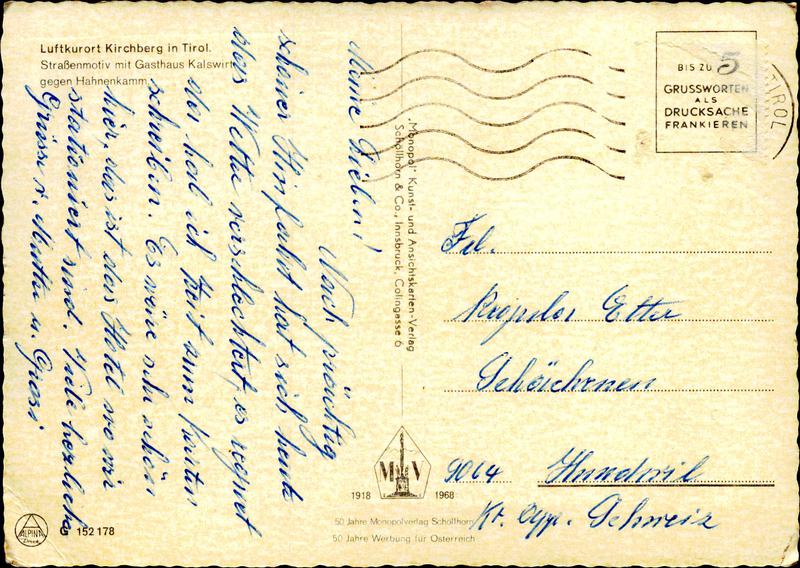 Luftkurort Kirchberg in Tirol.
Straßenmotiv mit Gasthaus Kalswirt
gegen Hahnenkamm
Meine Lieben!
Nach prächtig
schöner Hinfahrt hat sich heute
das Wetter verschlechtert, es regnet
aber hab ich Zeit zum Karten
schreiben. Es wäre sehr schön
hier, das ist das Hotel wo wir
stationiert sind. Viele herzliche
Grüsse v. Mutter u. Grosi
G 152178
ALPINA
Druck
„Monopol" Kunst- und Ansichtskarten-Verlag
Schöllhorn & Co., Innsbruck, Colingasse 6
BIS ZU 5
GRUSSWORTEN
ALS
DRUCKSACHE
FRANKIEREN
TIROL
Frl.
Etter
9064 Hundwil
Kt. App. Schweiz
M V
1918 1968
50 Jahre Monopolverlag Schöllhorn
50 Jahre Werbung für Österreich